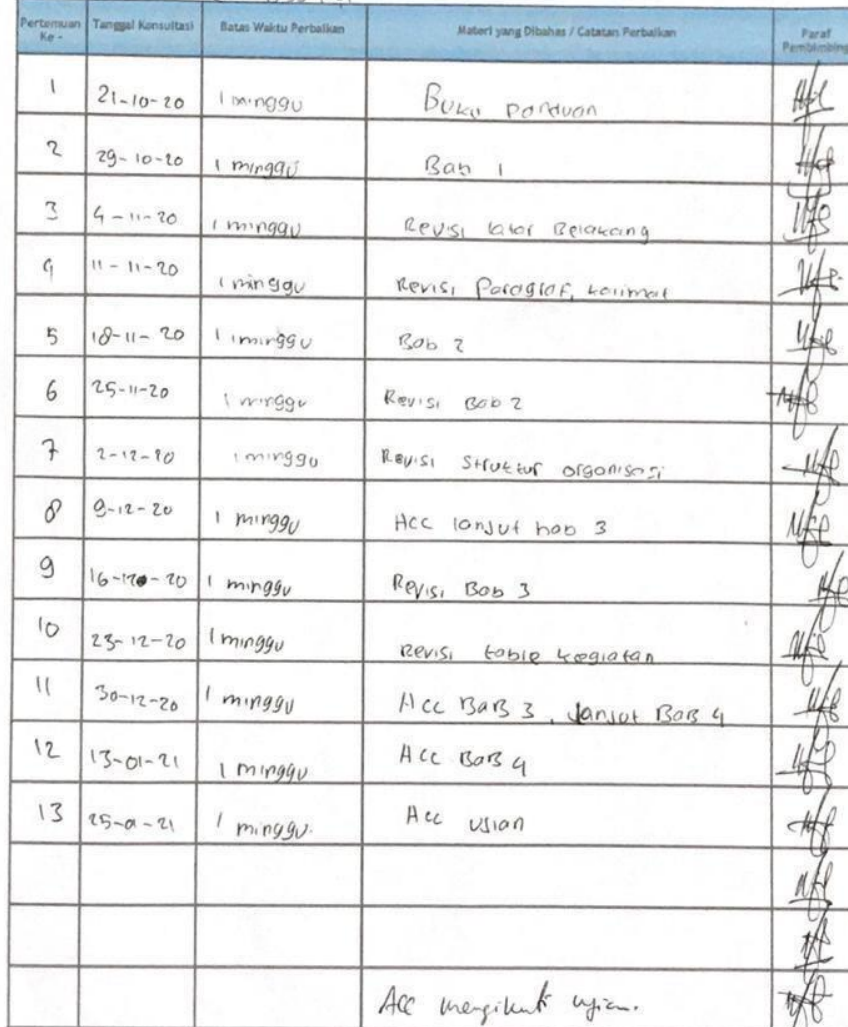 Pertemuan Ke - Tanggal Konsultasi Batas Waktu Perbaikan Materi yang Dibahas / Catatan Perbaikan Paraf Pembimbing
1 21-10-20 1 minggu Buku Panduan
2 29-10-20 1 minggu Bab 1
3 4-11-20 1 minggu Revisi latar Belakang
4 11-11-20 1 minggu Revisi Paragraf, kalimat
5 18-11-20 1 minggu Bab 2
6 25-11-20 1 minggu Revisi Bab 2
7 2-12-20 1 minggu Revisi Struktur organisasi
8 9-12-20 1 minggu Acc lanjut bab 3
9 16-12-20 1 minggu Revisi Bab 3
10 23-12-20 1 minggu Revisi table kegiatan
11 30-12-20 1 minggu Acc BaB 3, lanjut BaB 4
12 13-01-21 1 minggu Acc BaB 4
13 25-01-21 1 minggu. Acc Usian
Acc mengikuti ujian.